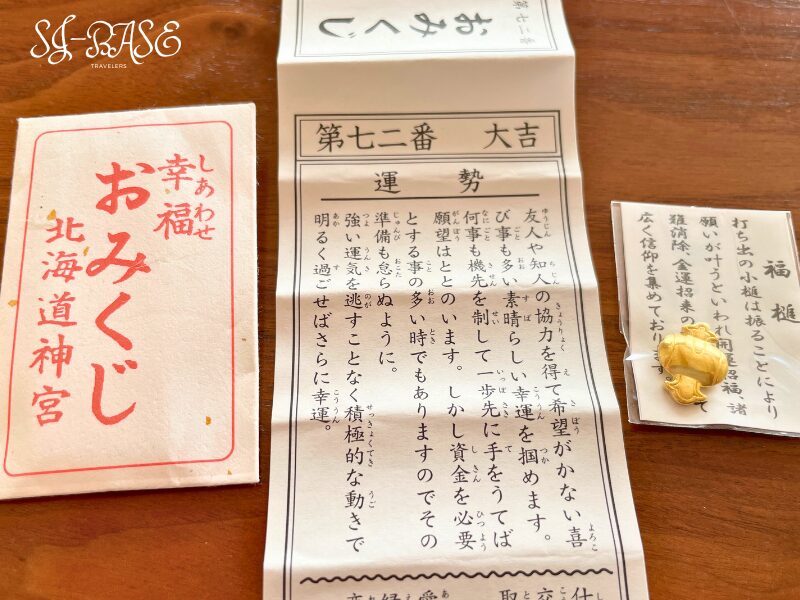 SJ-BASE
TRAVELERS
しあわせ
幸福
おみくじ
北海道神宮
第七二番
おみくじ
第七二番 大吉
運勢
友人や知人の協力を得て希望がかない喜
び事も多い素晴らしい幸運を掴めます。
何事も機先を制して一歩先に手をうてば
願望はととのいます。しかし資金を必要
とする事の多い時でもありますのでその
準備も怠らぬように。
強い運気を逃すことなく積極的な動きで
明るく過ごせばさらに幸運。
福槌
打ち出の小槌は振ることにより
願いが叶うといわれ開運招福、諸
難消除、金運招来の
て
広く信仰を集めております